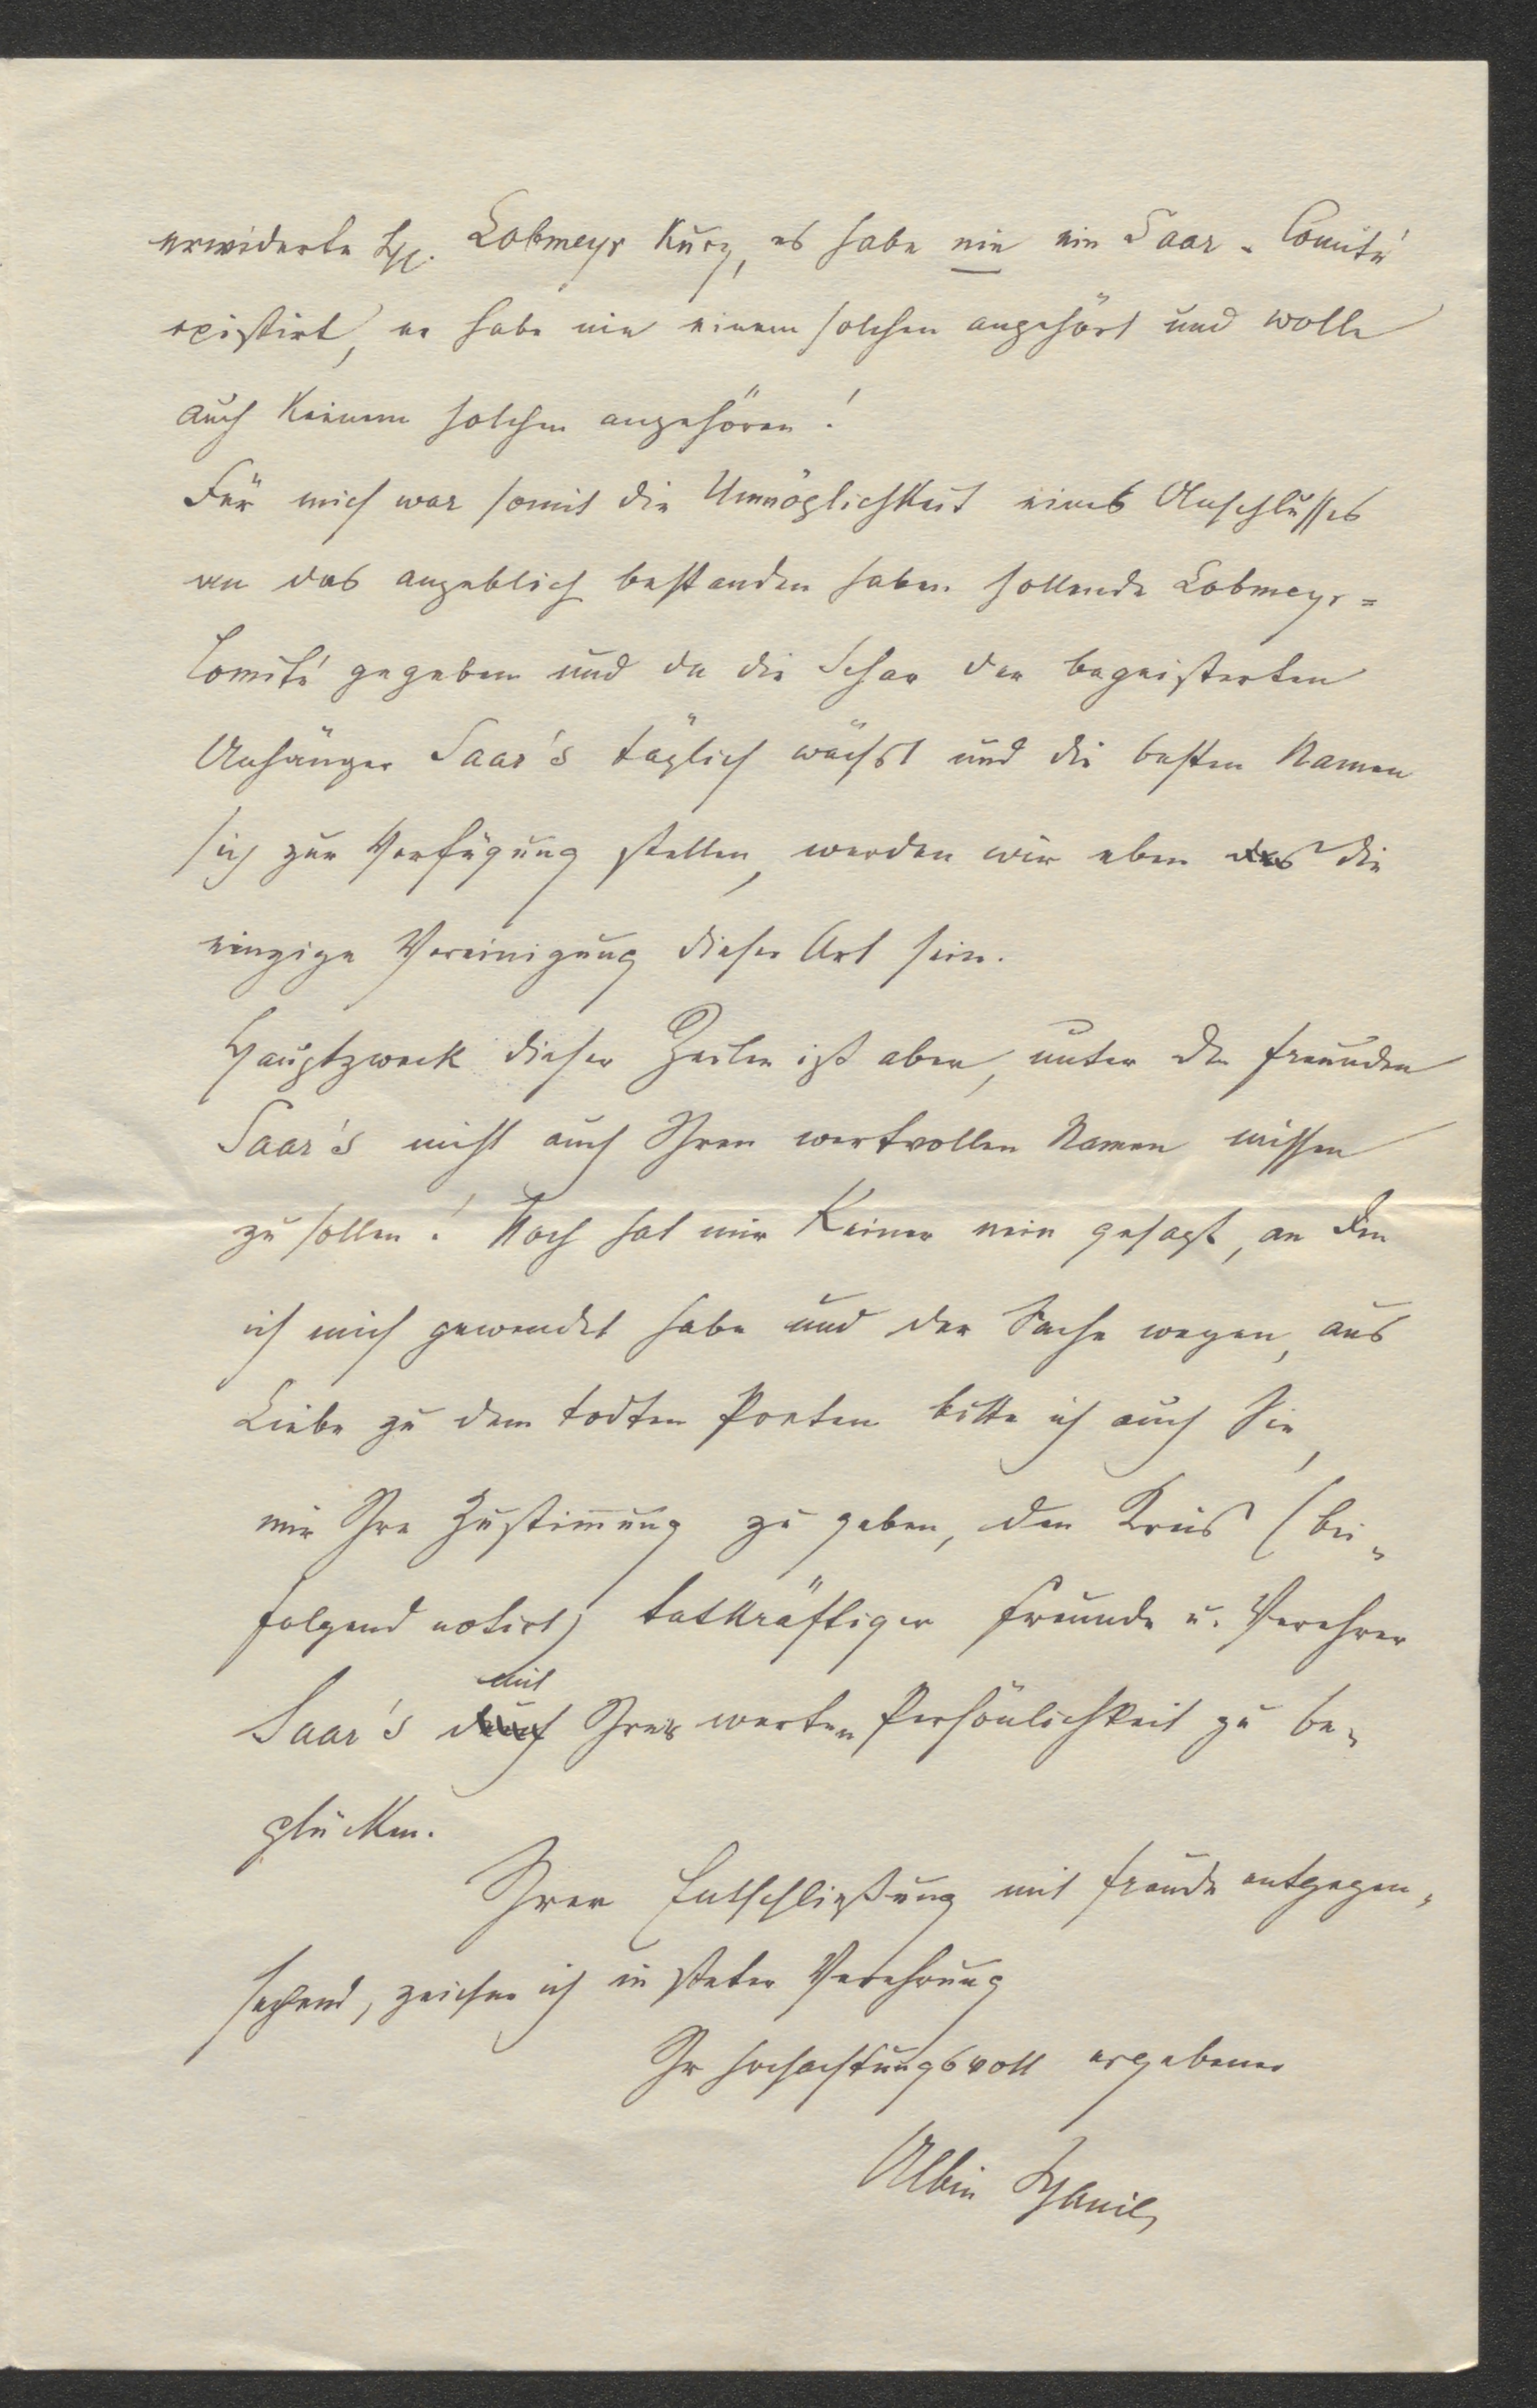 erwiderte H. Lobmeyr kurz, es habe nie ein Saar-Comité
existirt, er habe nie einem solchen angehört und wolle
auch keinem solchen angehören!
Für mich war somit die Unmöglichkeit eines Anschlusses
an das angeblich bestanden haben sollende Lobmeyr=
Comité gegeben und da die Schar der begeisterten
Anhänger Saar's täglich wächst und die besten Namen
sich zur Verfügung stellen, werden wir eben das die
einzige Vereinigung dieser Art sein.
Hauptzweck dieser Zeilen ist aber, unter den Freunden
Saar's nicht auch Ihren wertvollen Namen missen
zu sollen! Noch hat mir Keiner nein gesagt, an den
ich mich gewendet habe und der Sache wegen, aus
Liebe zu dem todten Poeten bitte ich auch Sie,
mir Ihre Zustimmung zu geben, den Kreis (bei-
folgend notirt) tatkräftiger Freunde u. Verehrer
mit
Saar's durch Ihrer werten Persönlichkeit zu be-
glücken.
Ihrer Entschließung mit Freude entgegen-
sehend, zeichne ich in steter Verehrung
Ihr hochachtungsvoll ergebener
Albin